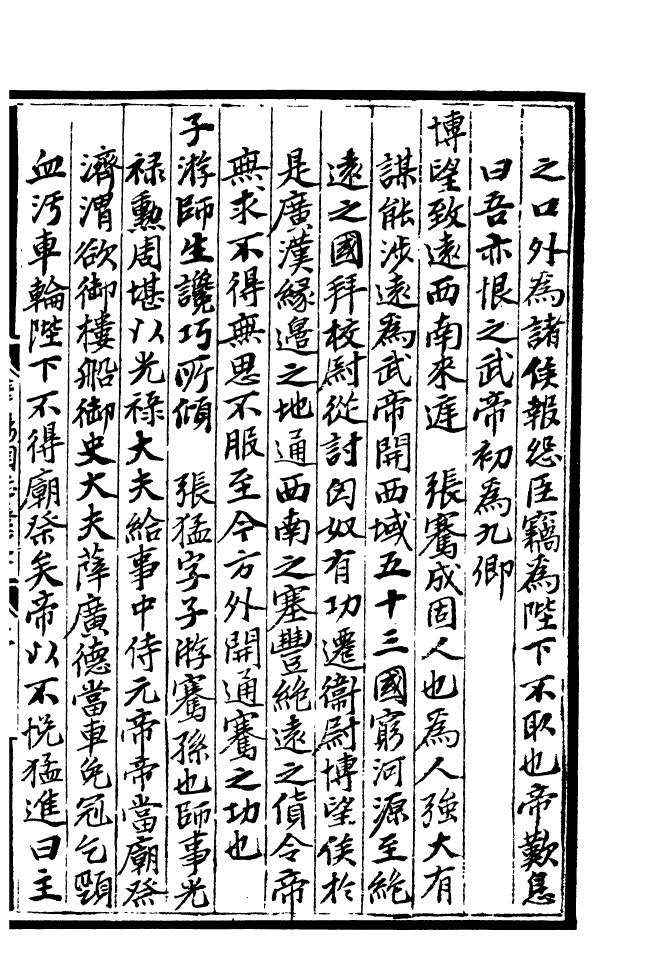 之口外爲諸侯報怨臣竊爲陛下不取也帝歎息
曰吾亦恨之武帝初爲九卿
博望致遠西南來遅　張騫成固人也爲人強大有
謀能涉遠爲武帝開西域五十三國窮河源至絶
遠之國拜校尉從討匈奴有功遷衞尉博望侯於
是廣漢緣邊之地通西南之塞豐絶遠之貨令帝
無求不得無思不服至今方外開通騫之功也
子游師生讒巧所傾　張猛字子游騫孫也師事光
禄勲周堪以光禄大夫給事中侍元帝帝當廟祭
濟渭欲御樓船御史大夫薛廣德當車免冠乞頸
血汚車輪陛下不得廟祭矣帝以不悅猛進曰主